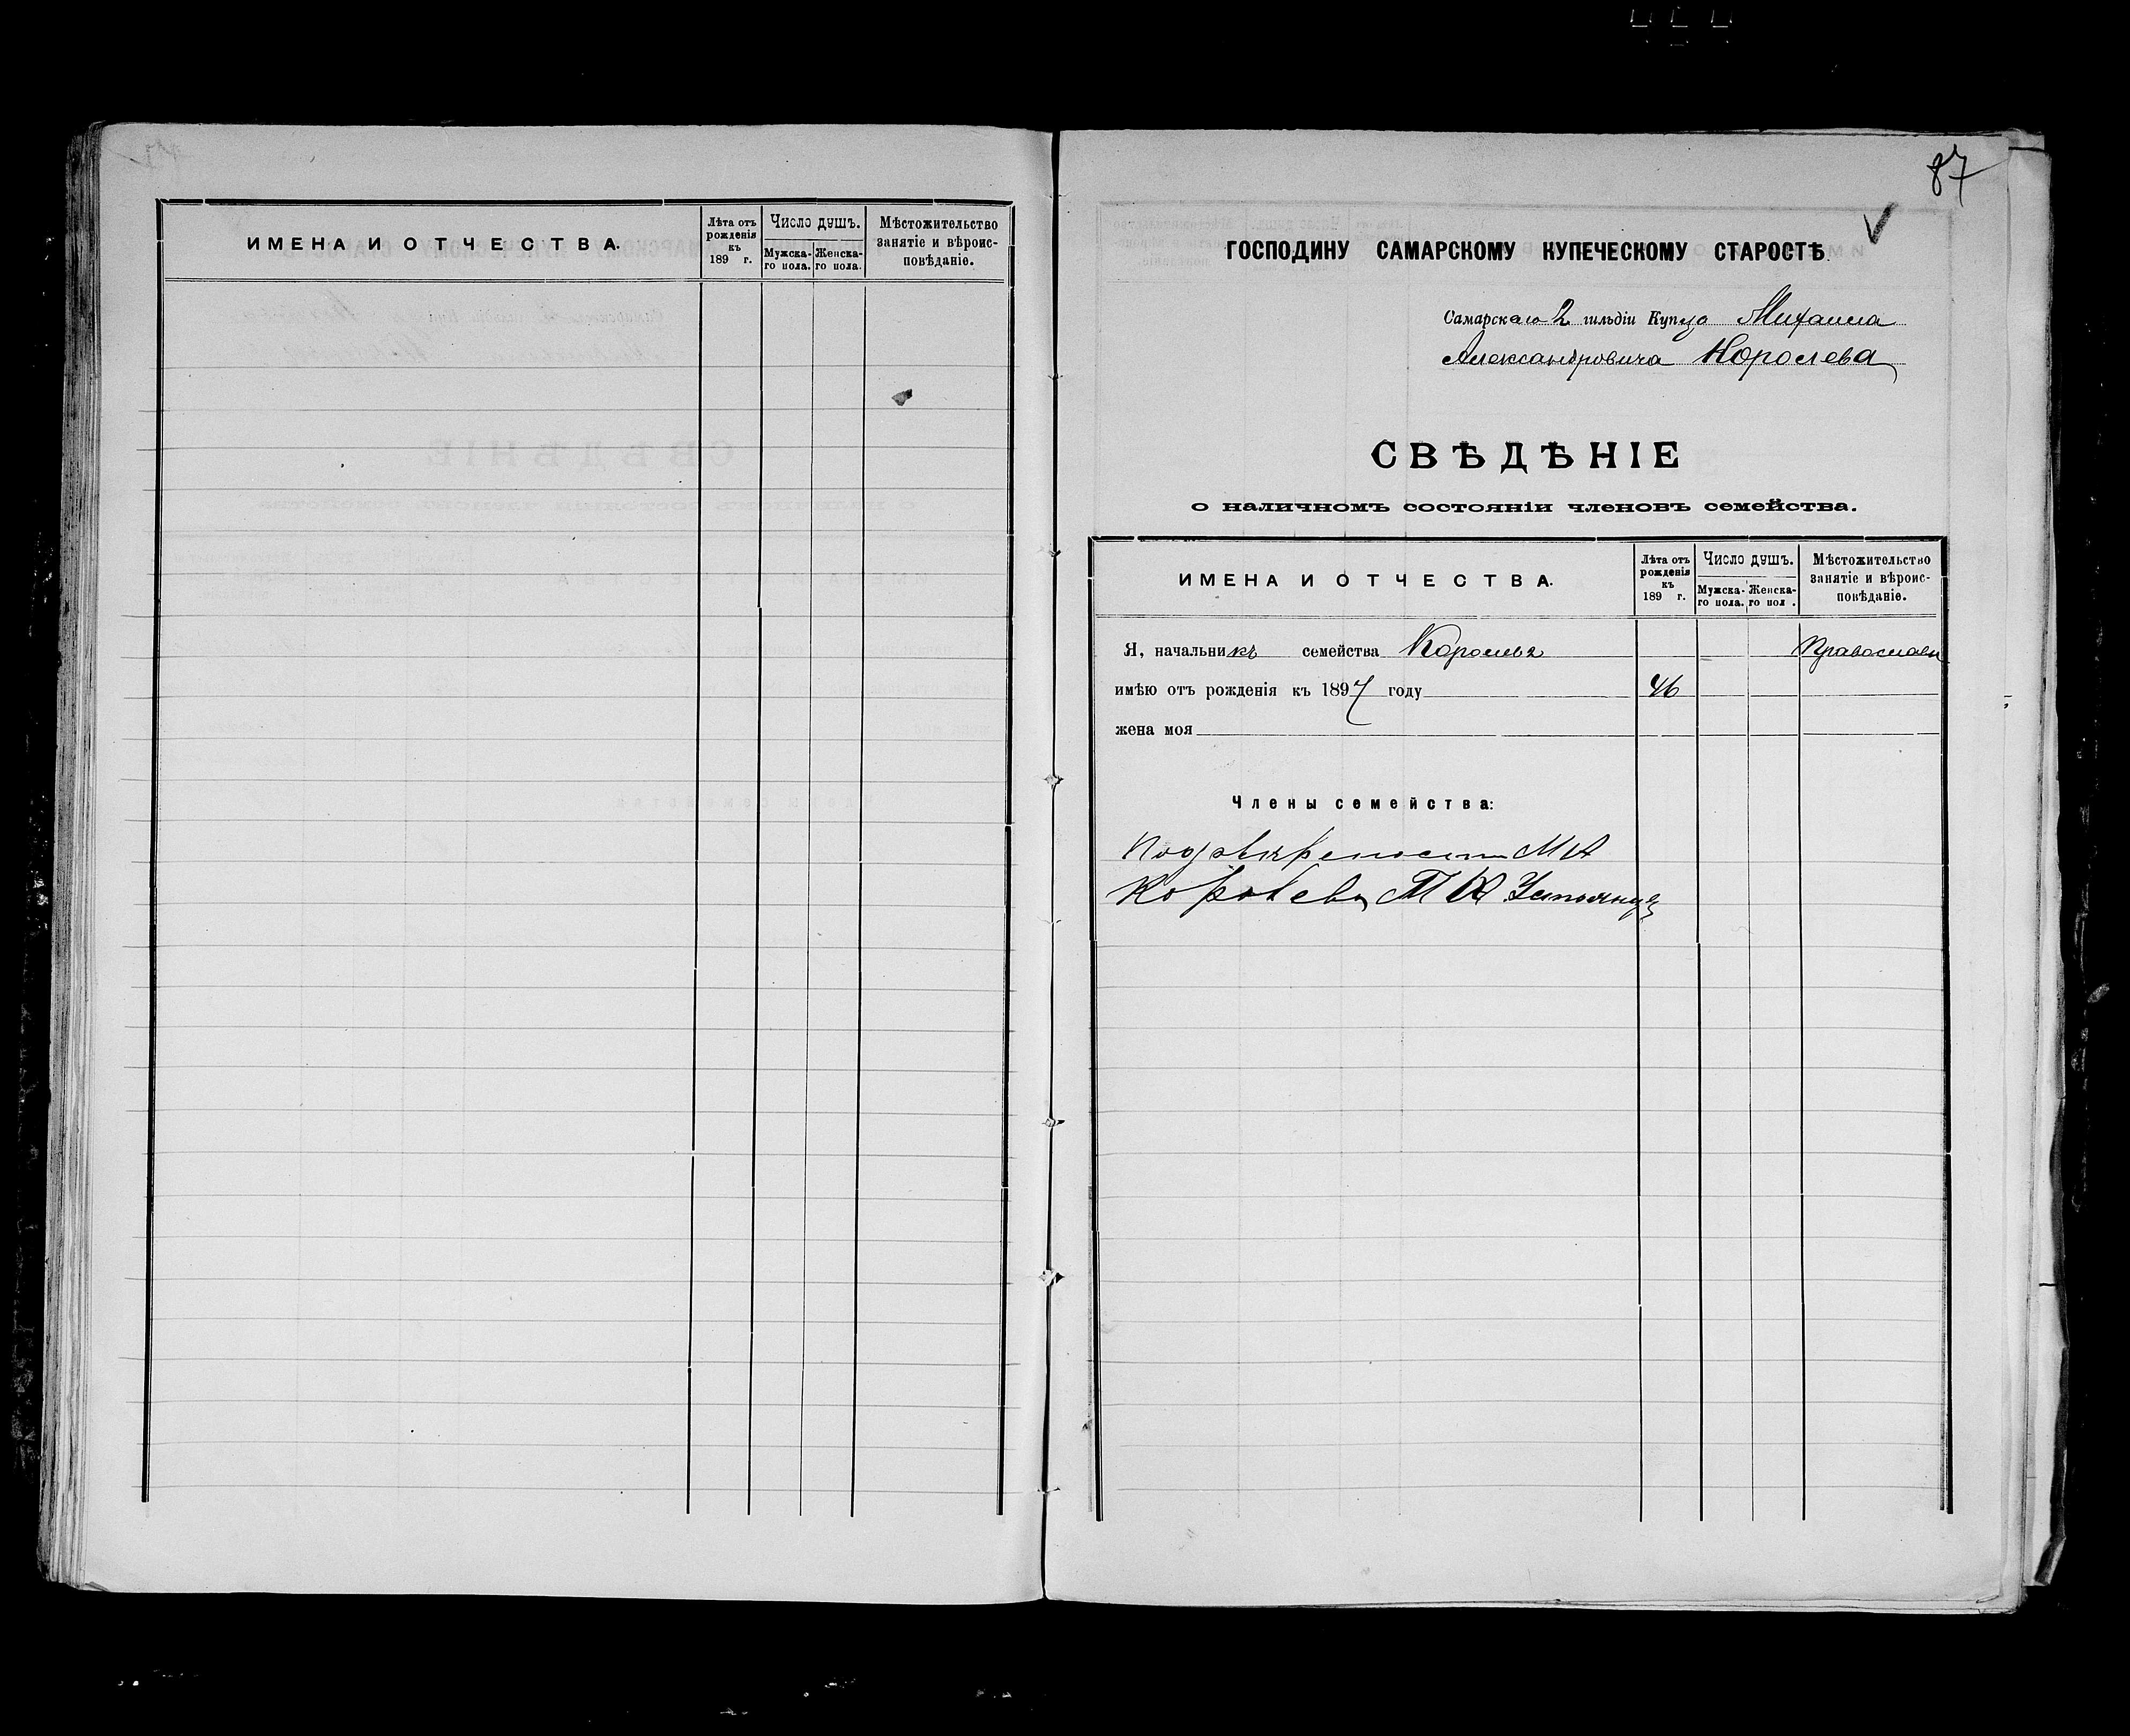 ИМЕНА И ОТЧЕСТВА.
Лѣта отъ рожденія къ 189 г.
Число душъ.
Мужска-го пола.
Женска-го пола.
Мѣстожительство занятіе и вѣроис-повѣданіе.
87
ГОСПОДИНУ САМАРСКОМУ КУПЕЧЕСКОМУ СТАРОСТѢ.
Самарскаго 2 гильдіи Купца Михаила
Александровича Королева
СВѢДѢНІЕ
о наличномъ состояніи членовъ семейства.
ИМЕНА И ОТЧЕСТВА.
Лѣта отъ рожденія къ 189 г.
Число душъ.
Мужска-го пола.
Женска-го пол .
Мѣстожительство занятіе и вѣроис-повѣданіе.
Я, начальникъ семейства Королевъ Православн
имѣю отъ рожденія къ 1897 году 46
жена моя
Члены семейства:
По довѣренности М А
Королева